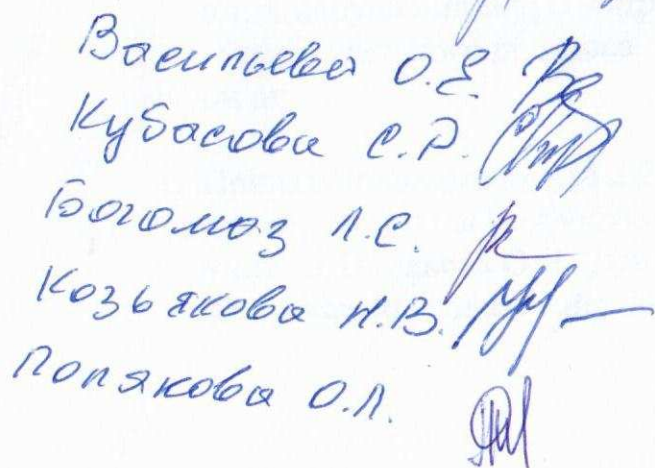 Васильева О.Е.
Кубасова С.Р.
Богомаз Л.С.
Козьякова Н.В.
Полякова О.Л.